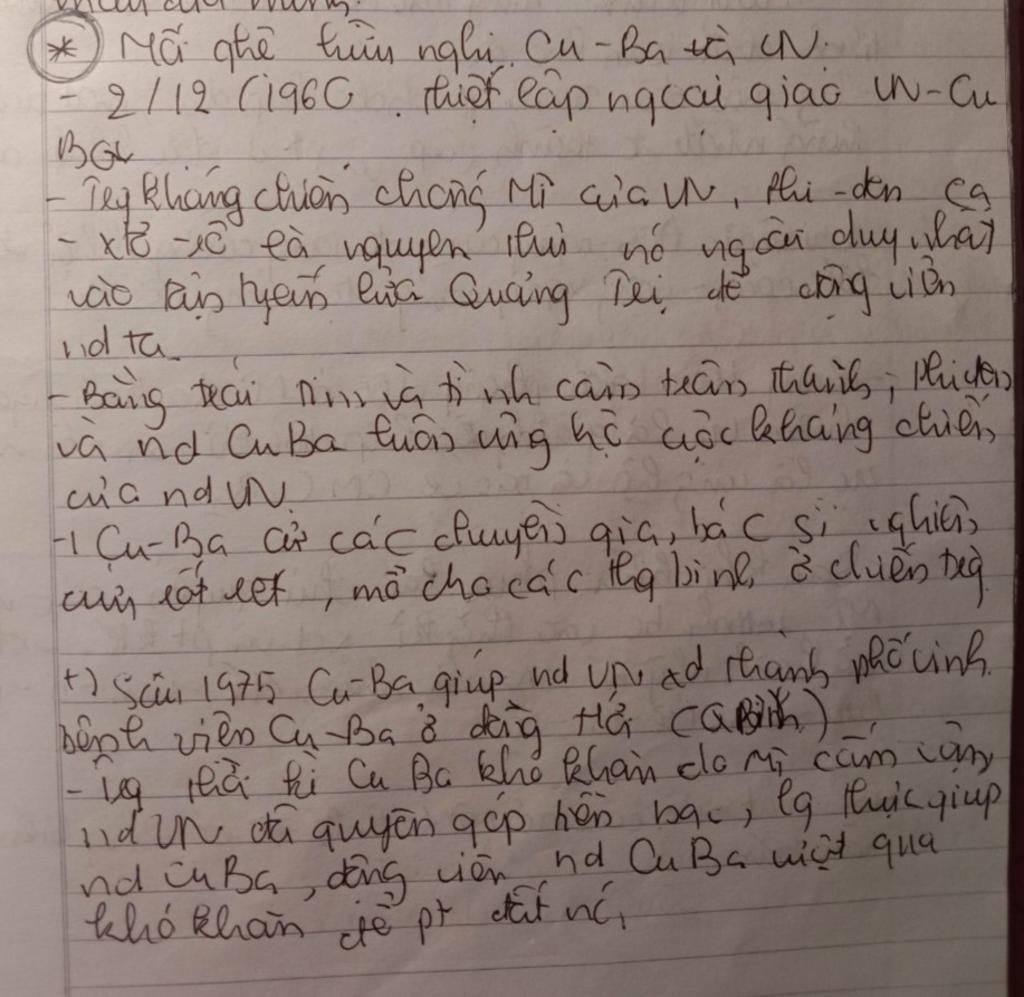 của mình.
* Mối qhệ hữu nghị Cu-Ba và VN.
- 2/12/1960. thiết lập ngoại giao VN-Cu
Ba
- Trg kháng chiến chống Mĩ của VN, Phi-đen Ca
- xtơ-rô là nguyên thủ nc ngoài duy nhất
vào tận tuyến lửa Quảng Trị để động viên
nd ta.
- Bằng trái tim và tình cảm chân thành, Phi đen
và nd Cu Ba luôn ủng hộ cuộc kháng chiến
của nd VN.
+) Cu-Ba cử các chuyên gia, bác sĩ nghiên
cứu sốt rét, mổ cho các thg binh ở chiến trg
+) Sau 1975 Cu-Ba giúp nd VN xd thành phố vinh.
bệnh viện Cu-Ba ở đồng Hới (Q Bình)
- Trg thời kì Cu Ba khó khăn do Mĩ cấm vận,
nd VN đã quyên góp tiền bạc, lg thực giúp
nd Cu Ba, động viên nd Cu Ba vượt qua
khó khăn để pt đất nc,